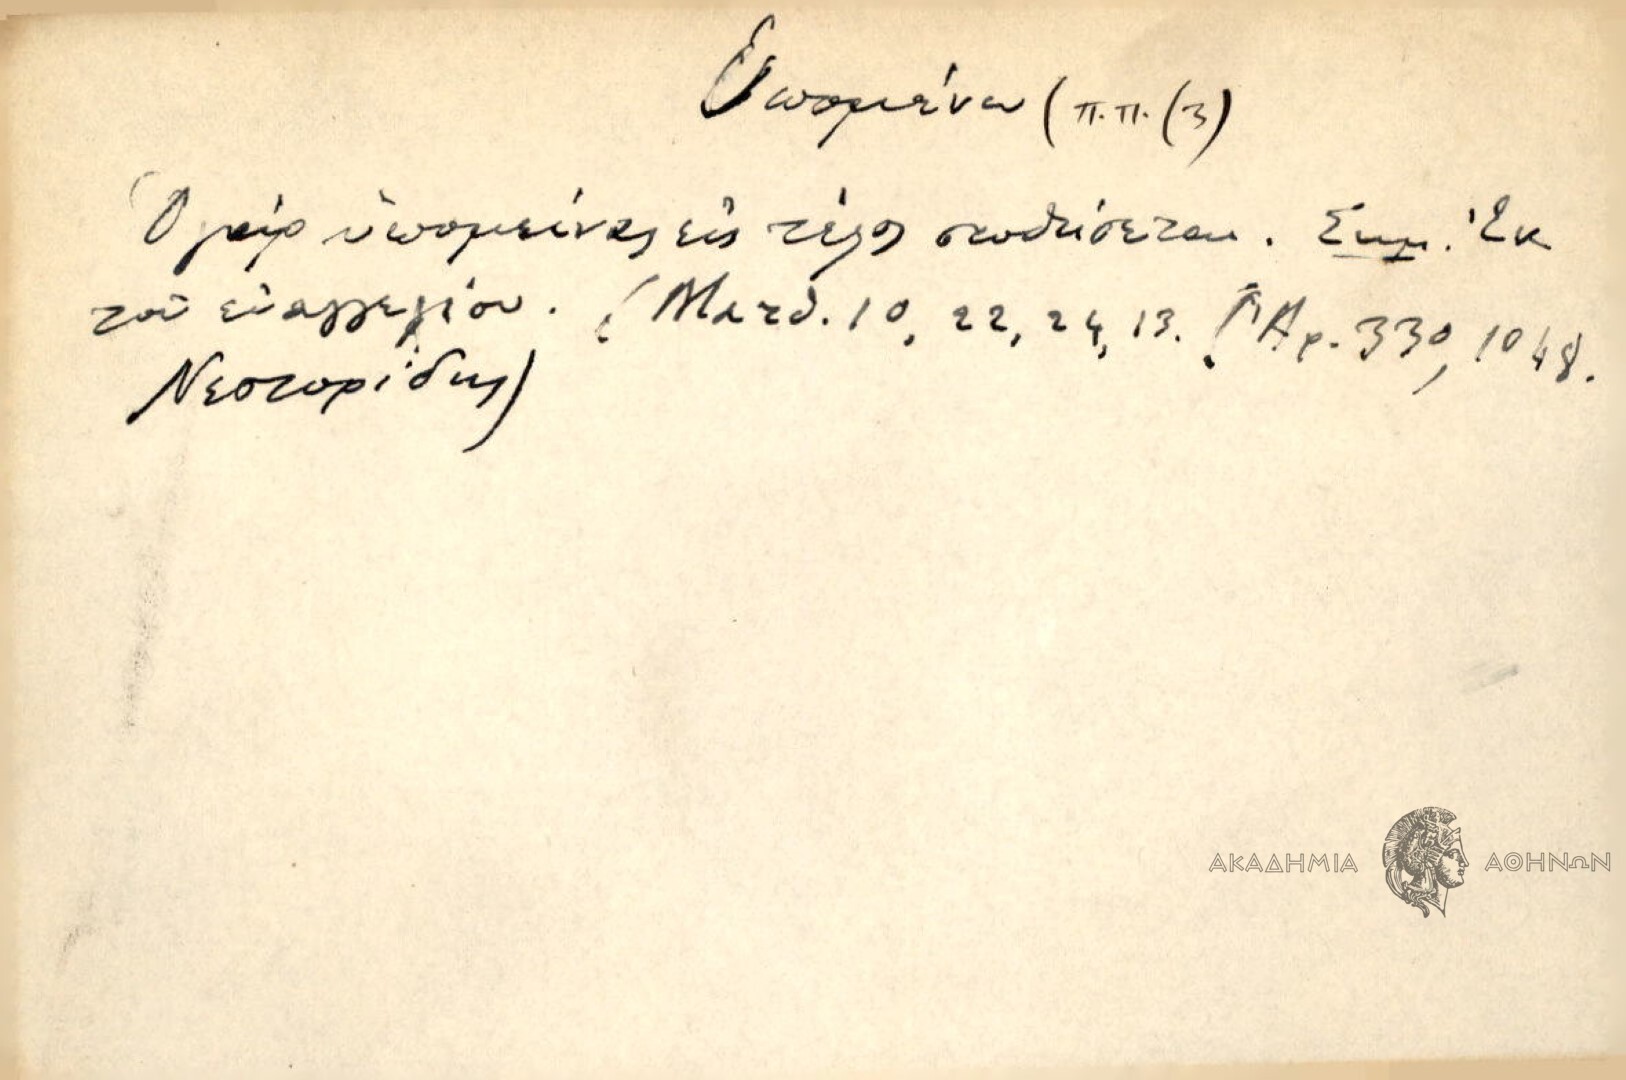 Ὑπομένω (π.π. (3)
Ὁ γάρ ὑπομείνας εἰς τέλος σωθήσεται. Σημ. Ἐκ
τοῦ εὐαγγελίου. (Ματθ. 10, 22, 24, 13. (Ἀρ. 330, 1048.
Νεστορίδης)
ΑΚΑΔΗΜΙΑ ΑΘΗΝΩΝ